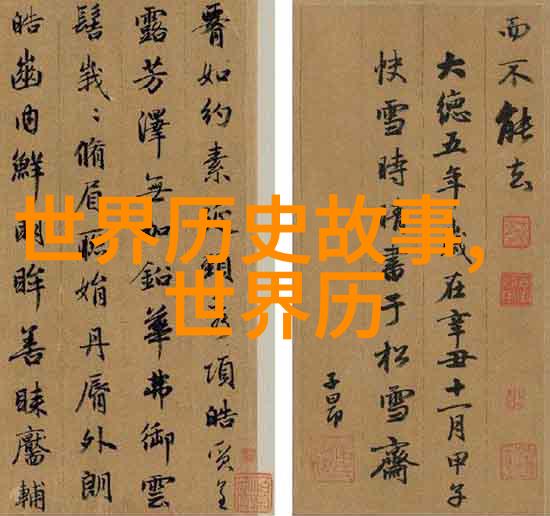 世界历史故事,
世界历
而不能去
大德五年歲在辛丑十一月甲子
快雪時晴書于松雪齋
子昂
如約素延頸項皓質呈
露芳澤無加鉛華弗御雲
髻峩〻脩眉聯娟丹脣外朗
皓齒内鮮明眸善睞靨輔